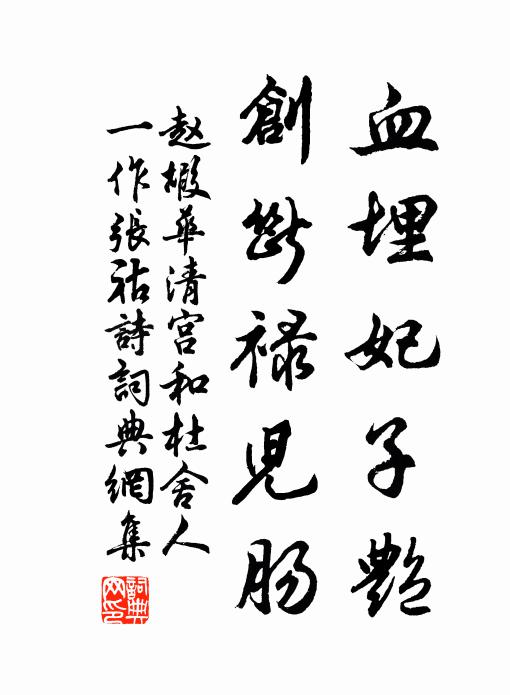 血埋妃子艷
創斷祿兒腸
赵嘏華清宫和杜舍人
一作張祜詩詞典網集
詞典网印